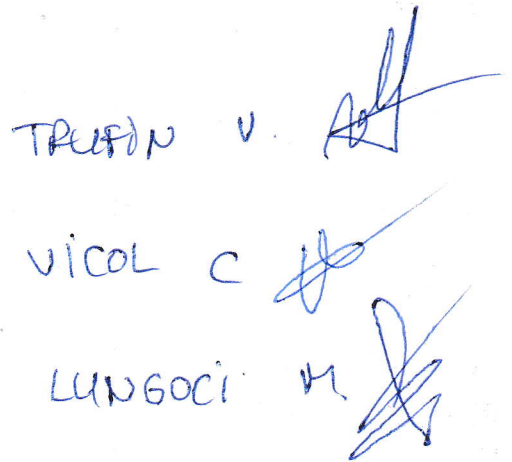 TRUFIN V.
VICOL C
LUNGOCI M.